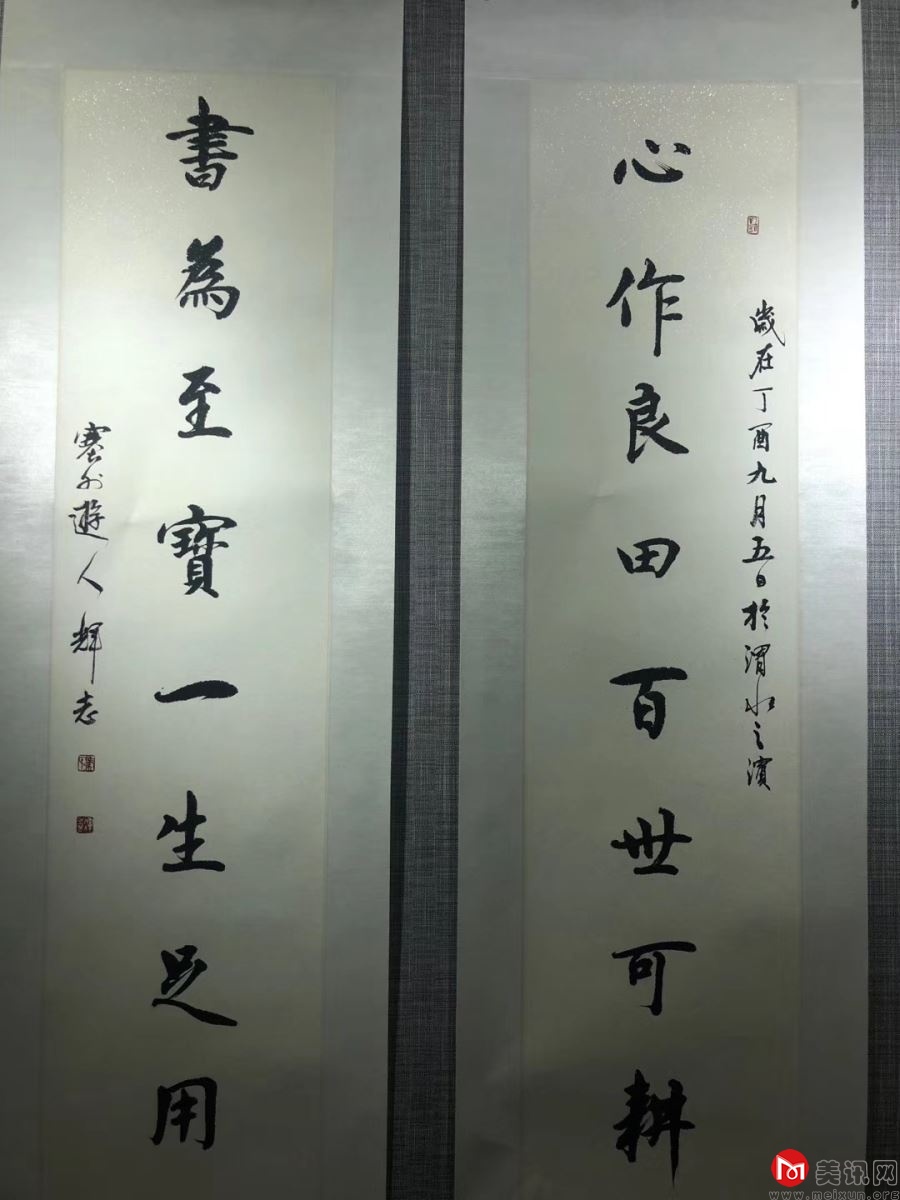 心作良田百世可耕
歲在丁酉九月五日於渭水之濱
書為至寶一生足用
塞外遊人輝志
美讯网
www.meixun.org